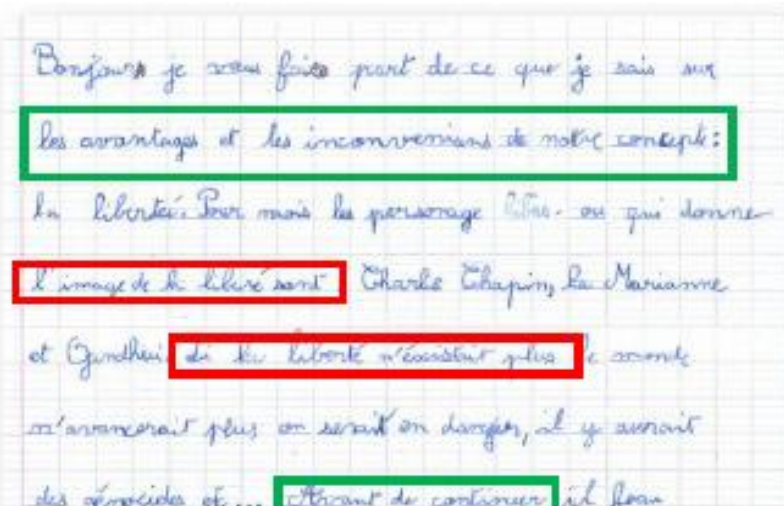 Bonjour je vous fais part de ce que je sais sur
les avantages et les inconvenians de notre concept:
la liberté. Pour mois les personage libre. ou qui donne
l'image de la libiré sont Charle Chapin, la Marianne
et Gandhui. si la liberté n'éxistait plus le monde
n'avancerait plus on serait en danger, il y aurait
des génocides et ... Avant de continuer il feau